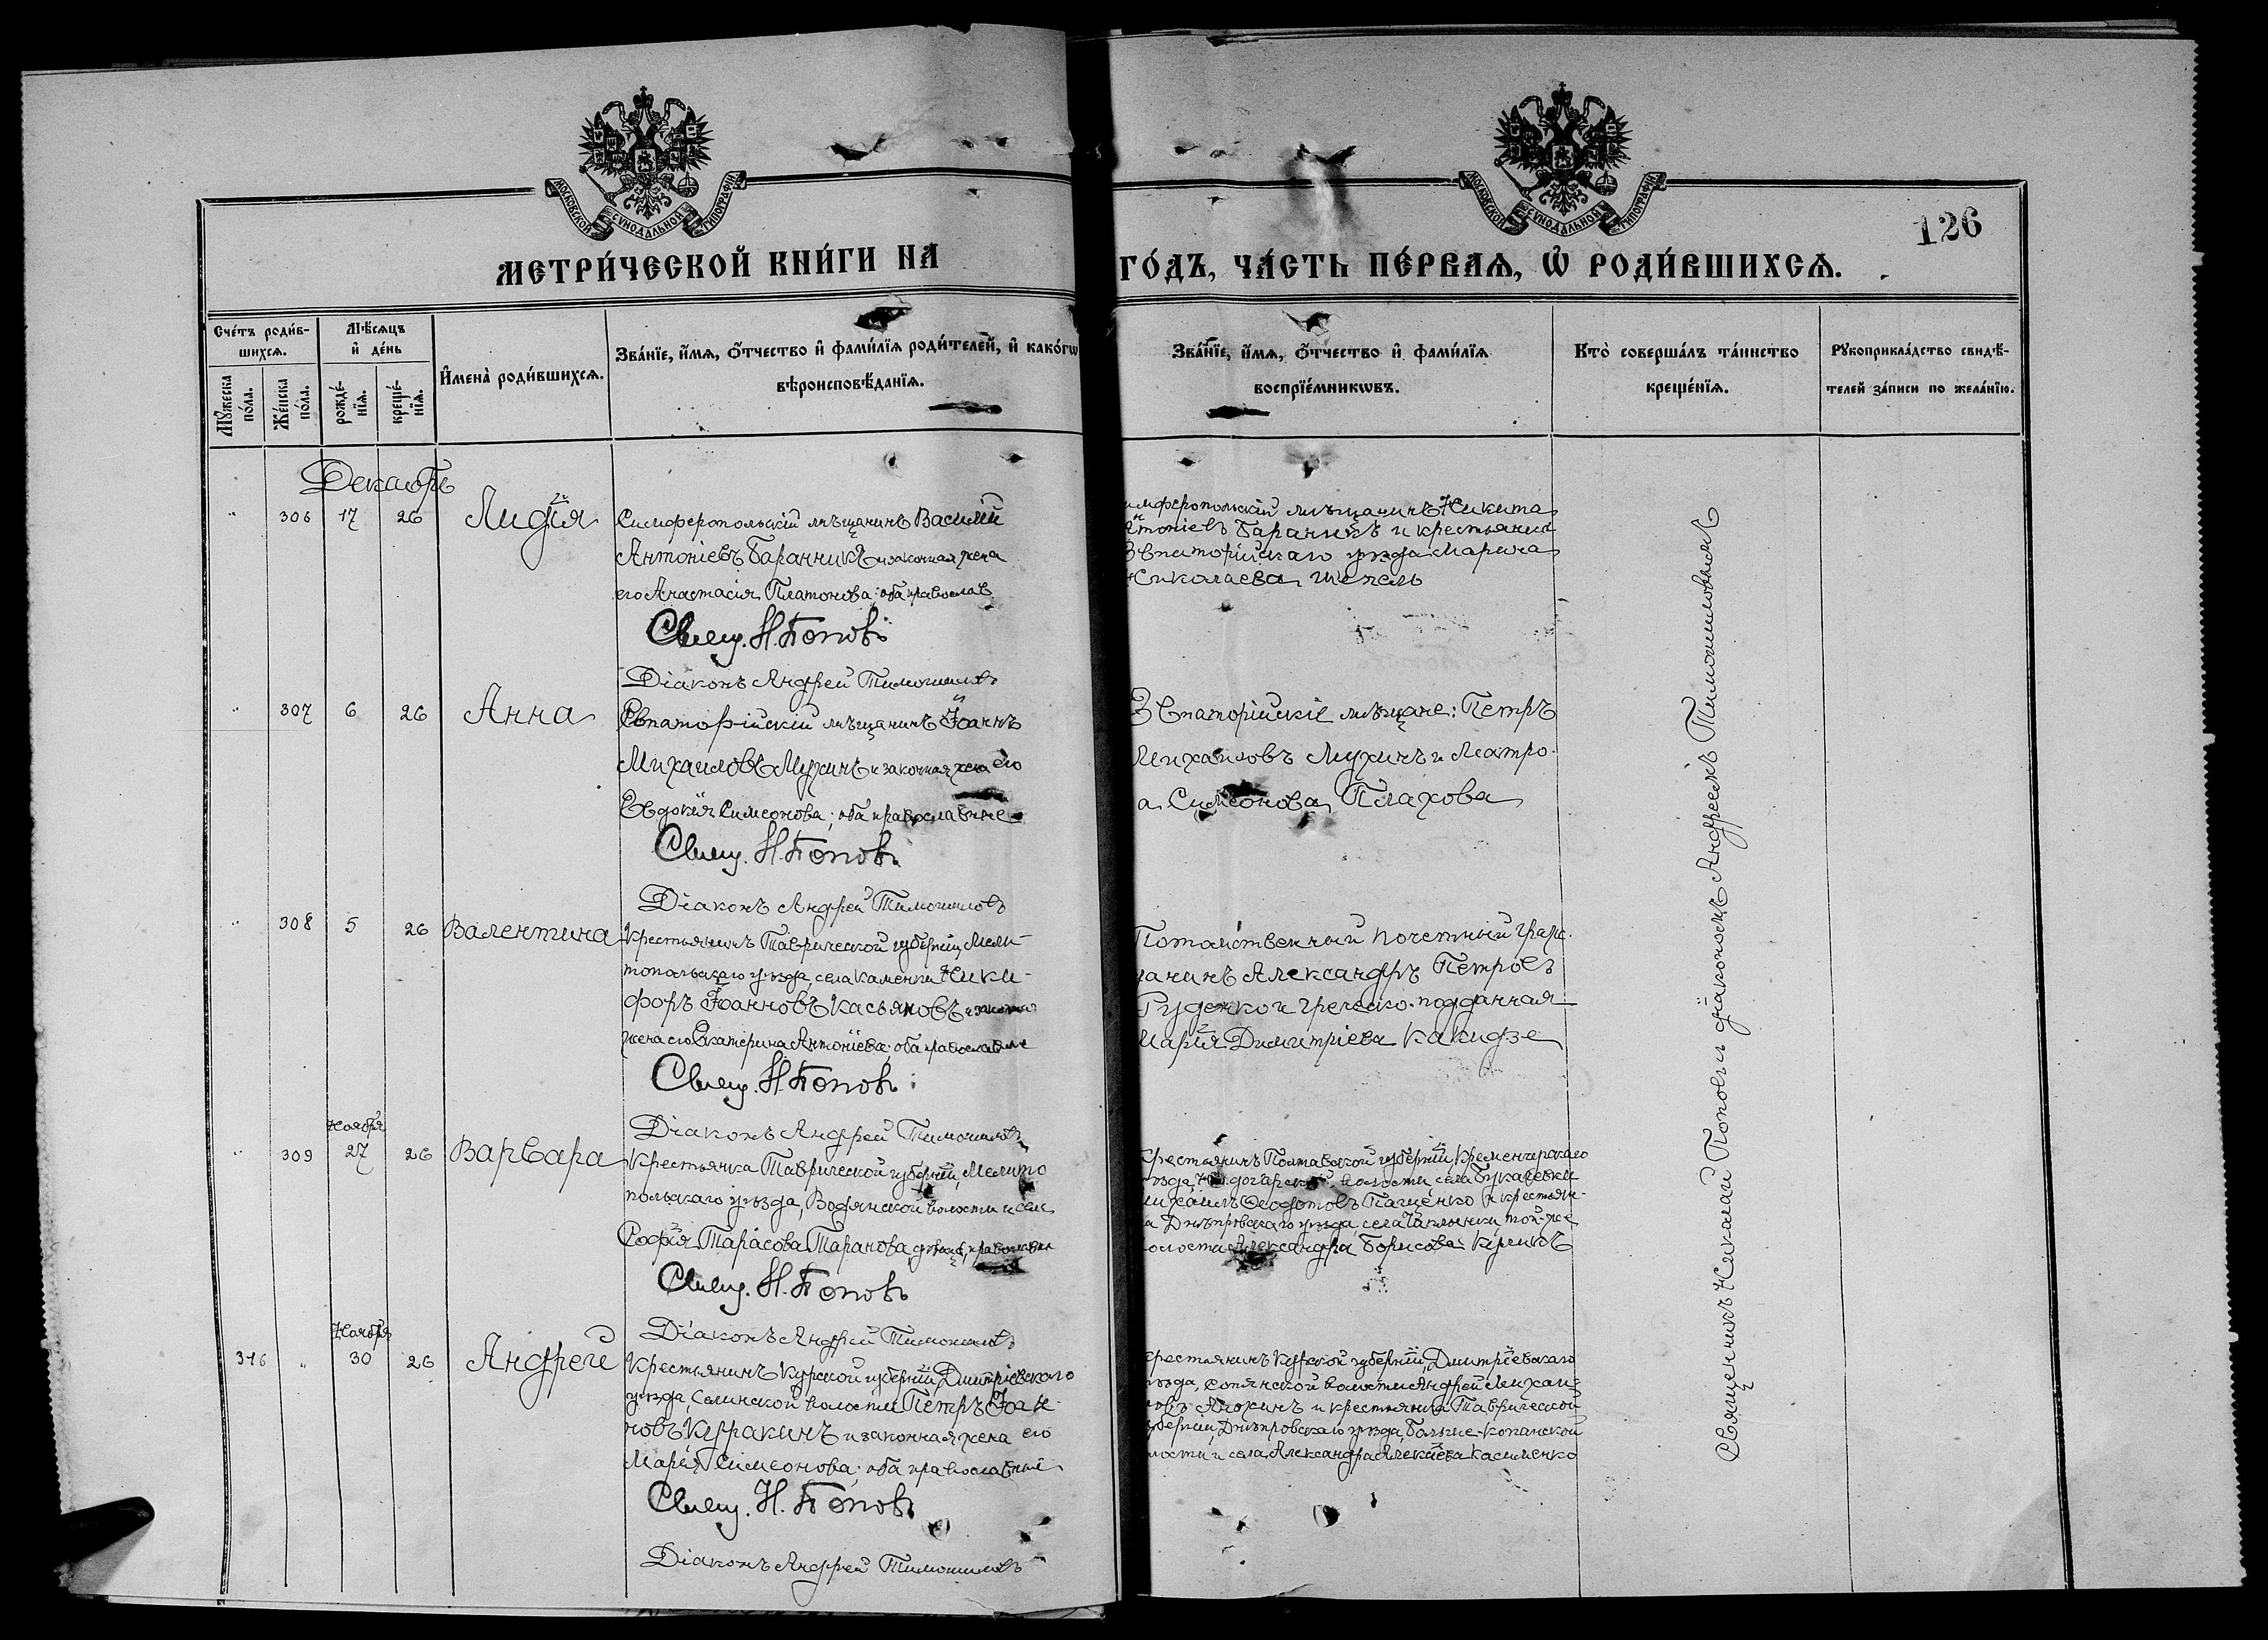 МОСКОВСКОЙ СѴНОДАЛЬНОЙ ТИПОГРАФІИ
МОСКОВСКОЙ СѴНОДАЛЬНОЙ ТИПОГРАФІИ
126
МЕТРИ́ЧЕСКОЙ КНИ́ГИ НА
ГО́ДЪ, ЧА́СТЬ ПЕ́РВАѦ, Ѡ҆ РОДИ́ВШИХСѦ.
Сче́тъ роди́в-
шихсѧ.
Мꙋ́жеска
по́ла.
Же́нска
по́ла.
Мѣ́сѧцъ
и҆ де́нь
рожде́-
нїѧ.
креще́-
нїѧ.
И҆мена̀ роди́вшихсѧ.
Зва́нїе, и҆́мѧ, ѻ҆́тчество и҆ фами́лїѧ роди́телей, и҆ како́гѡ
вѣроисповѣ́данїѧ.
Зва́нїе, и҆́мѧ, ѻ҆́тчество и҆ фами́лїѧ
воспрїе́мникѡвъ.
Кто̀ соверша́лъ та́инство
креще́нїѧ.
Рꙋкоприкла́дство свидѣ́-
телей за́писи по жела́нїю.
Декабрь
" 306 17 26 Лидія
Симферопольскій мѣщанинъ Василій
Антоніевъ Баранникъ и законная жена
его Анастасія Платонова; оба православ.
Свящ. Н. Поповъ
Діаконъ Андрей Тимошиловъ
имферопольскій мѣщанинъ Никита
нтоніевъ Баранникъ и крестьянка
Эвпаторійскаго уѣзда Марина
Николаева
" 307 6 26 Анна
Евпаторійскій мѣщанинъ Іоаннъ
Михаиловъ Мухинъ и законная жена его
Евдокія Симеонова; оба православные
Свящ. Н. Поповъ
Діаконъ Андрей Тимошиловъ
Эвпаторійскіе мѣщане: Петръ
Михаиловъ Мухинъ и Матро-
а Симеонова Плахова
" 308 5 26 Валентина
Крестьянинъ Таврической губерніи, Мели-
топольскаго уѣзда, села Каменки Ники-
форъ Іоанновъ Касьяновъ и законная
жена его Екатерина Антоніева; оба православные
Свящ. Н. Поповъ
Діаконъ Андрей Тимошиловъ
Потомственный почетный граж-
данинъ Александръ Петровъ
Руденко и греческо-подданная
Марія Димитріева Какидзе
Ноября
" 309 27 26 Варвара
Крестьянка Таврической губерніи, Мелито
польскаго уѣзда, Водянской волости и села
Софія Тарасова Таранова, дѣвица, православная
Свящ. Н. Поповъ
Діаконъ Андрей Тимошиловъ
крестьянинъ Полтавской губерніи, Кременчугскаго
уѣзда, волости, села
Михаилъ Ѳеодотовъ Пащенко и крестьян-
ка Днѣпровскаго уѣзда, села Чаплинки, той-же
волости Александра Борисова
Ноября
316 " 30 26 Андрей
Крестьянинъ Курской губерніи, Дмитріевскаго
уѣзда, Селинской волости Петръ Іоан-
новъ Куракинъ и законная жена его
Марія Симеонова; оба православные
Свящ. Н. Поповъ
Діаконъ Андрей Тимошиловъ
крестьянинъ Курской губерніи, Дмитріевскаго
уѣзда, волости Андрей Михаи-
ловъ и крестьянка Таврической
губерніи, Днѣпровскаго уѣзда, Больше-Копанской
волости и села, Александра Алексіева Касименко
Священникъ Николай Поповъ и діаконъ Андреемъ Тимошиловымъ